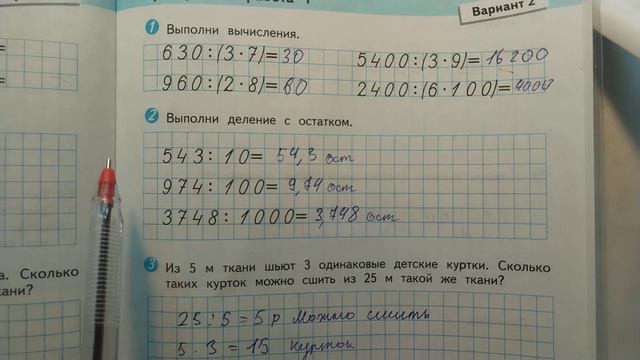 Вариант 2
1 Выполни вычисления.
630:(3·7)=30 5400:(3·9)=16200
960:(2·8)=60 2400:(6·100)=4000
2 Выполни деление с остатком.
543:10= 54,3 ост
974:100= 9,74 ост
3748:1000= 3,748 ост
3 Из 5 м ткани шьют 3 одинаковые детские куртки. Сколько
таких курток можно сшить из 25 м такой же ткани?
25:5=5 р можно сшить
5·3=15 курток
а. Сколько
кани?